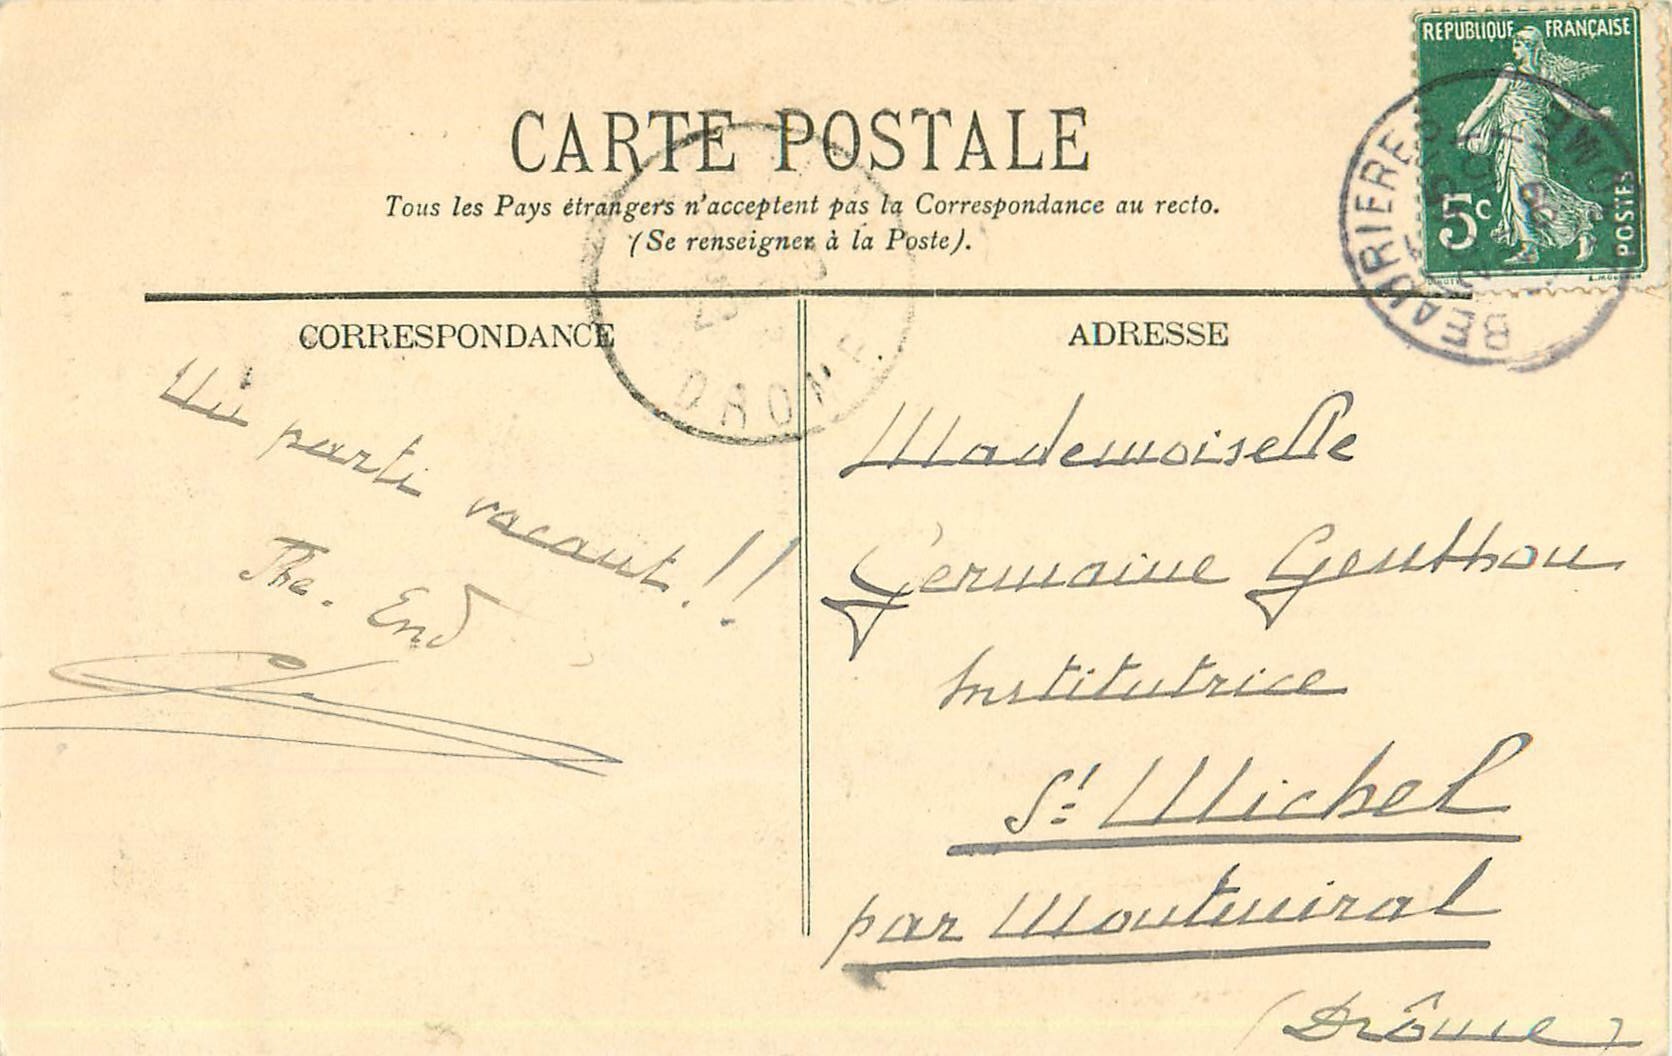 REPUBLIQUE FRANÇAISE
5c
POSTES
BEAURIERES
CARTE POSTALE
Tous les Pays étrangers n'acceptent pas la Correspondance au recto.
(Se renseigner à la Poste).
CORRESPONDANCE
Un parti vacant!!
The. End
DROME
ADRESSE
Mademoiselle
Germaine Genthon
Institutrice
St Michel
par Montmiral
(Drôme)